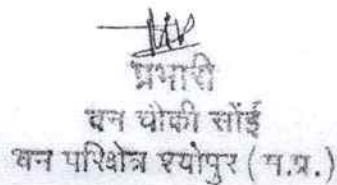 प्रभारी
वन चौकी सोंई
वन परिक्षेत्र श्योपुर (म.प्र.)